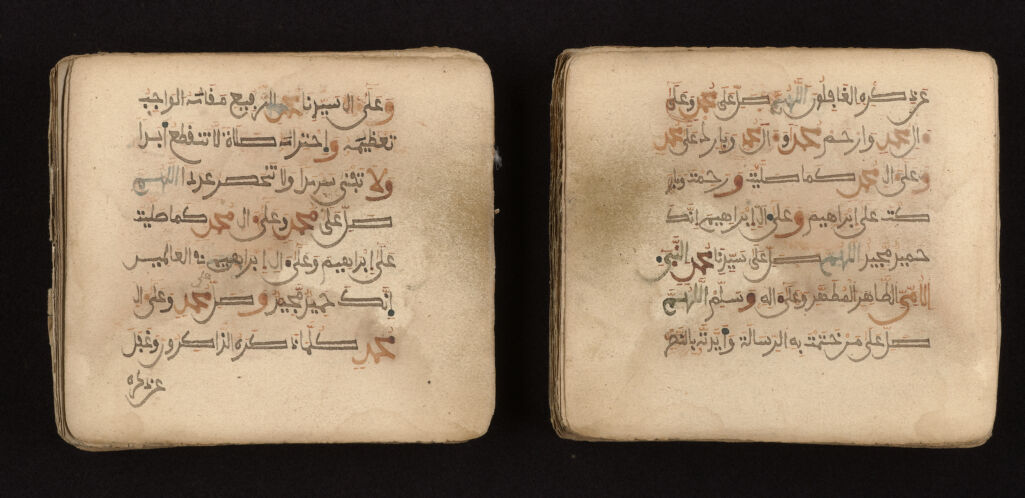 وعلى ال سيدنا محمد الرفيع مقامه الواجب
تعظيمه واحترامه صلاة لا تنقطع ابدا
ولا تفنى سرمدا ولا تنحصر عددا اللهم
صل على محمد وعلى ال محمد كما صليت
على إبراهيم وعلى ال إبراهيم في العالمين
إنك حميد مجيد وصل على محمد وعلى ال
محمد كلما ذكره الذاكرون وغفل
عن ذكره
عن ذكره الغافلون اللهم صل على محمد وعلى
ال محمد وارحم محمدا وال محمد وبارك على محمد
وعلى ال محمد كما صليت ورحمت وبار
كت على إبراهيم وعلى ال إبراهيم إنك
حميد مجيد اللهم صل على سيدنا محمد النبي
الامي الطاهر المطهر وعلى اله وسلم اللهم
صل على من ختمت به الرسالة وأيدته بالنصر